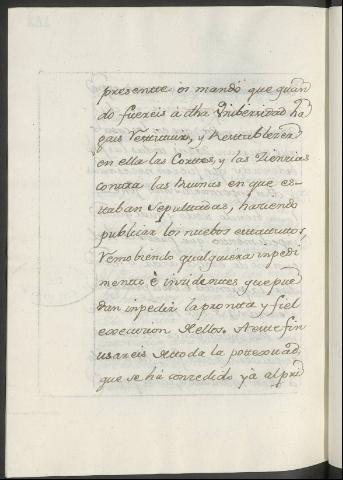 presentte os mandó que quan
do fuereis á dha Vnibersidad ha
gais Resttituir, y Resttablezcá
en ella las Corttes, y las Ciencias
conttra las Ruinas en que es-
ttaban Sepulttadas, haciendo
publicar los nuebos esttattuttos,
Remobiendo qualquiera inpedi
mentto è insidenttes que pue
dan inpedir la promtta y fiel
execucion dellos. A este fin
usareis de ttoda la pottesttad,
que se há concedido yá al pre